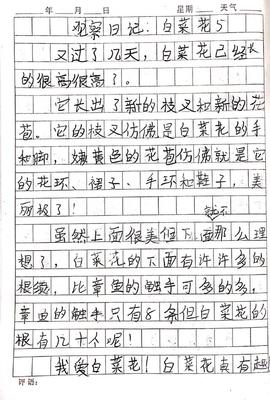 年 月 日 星期 天气
观察日记:白菜花5
又过了几天,白菜花已经长
的很高很高了。
它长出了新的枝叉和新的花
苞。它的枝叉仿佛是白菜花的手
和脚,嫩黄色的花苞仿佛就是它
的花环、裙子、手环和鞋子,美
丽极了!
就不
虽然上面很美但下面那么理
想了,白菜花的下面有许许多多的
根须,比章鱼的触手可多的多,
章鱼的触手只有8条但白菜花的
根有几十个呢!
我爱白菜花!白菜花真有趣
评语: